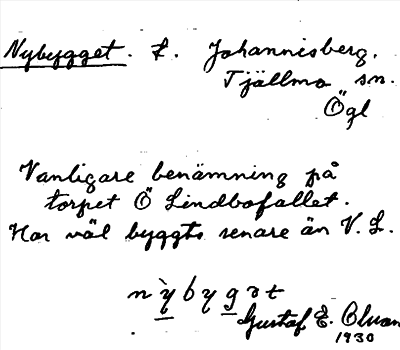 Nybygget. L. Johannisberg.
Tjällmo sn.
Ögl
Vanligare benämning på
torpet Ö Lindbofallet.
Har väl byggts senare än V. L.
nỳbygət
Gustaf E.
1930